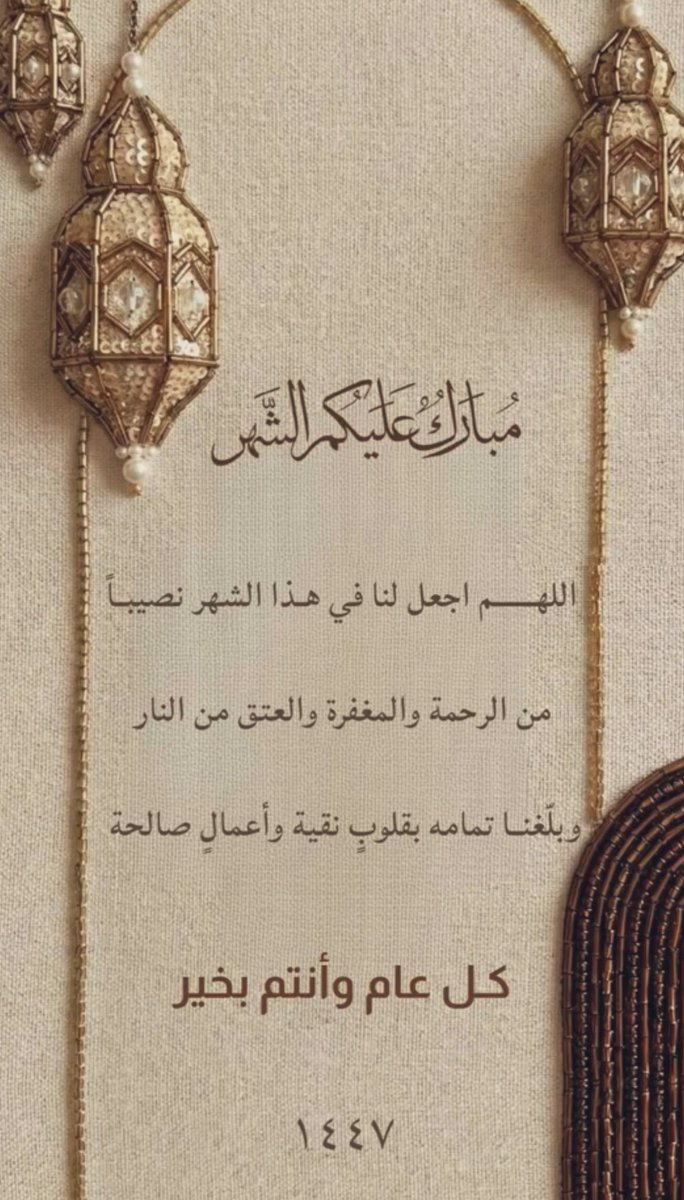 مُبَارَكٌ عَلَيكُم الشَّهر
اللهـــم اجعل لنا في هـذا الشهر نصيبـاً
من الرحمة والمغفرة والعتق من النار
وبلّغنـا تمامه بقلوبٍ نقية وأعمالٍ صالحة
كـل عام وأنتم بخير
١٤٤٧